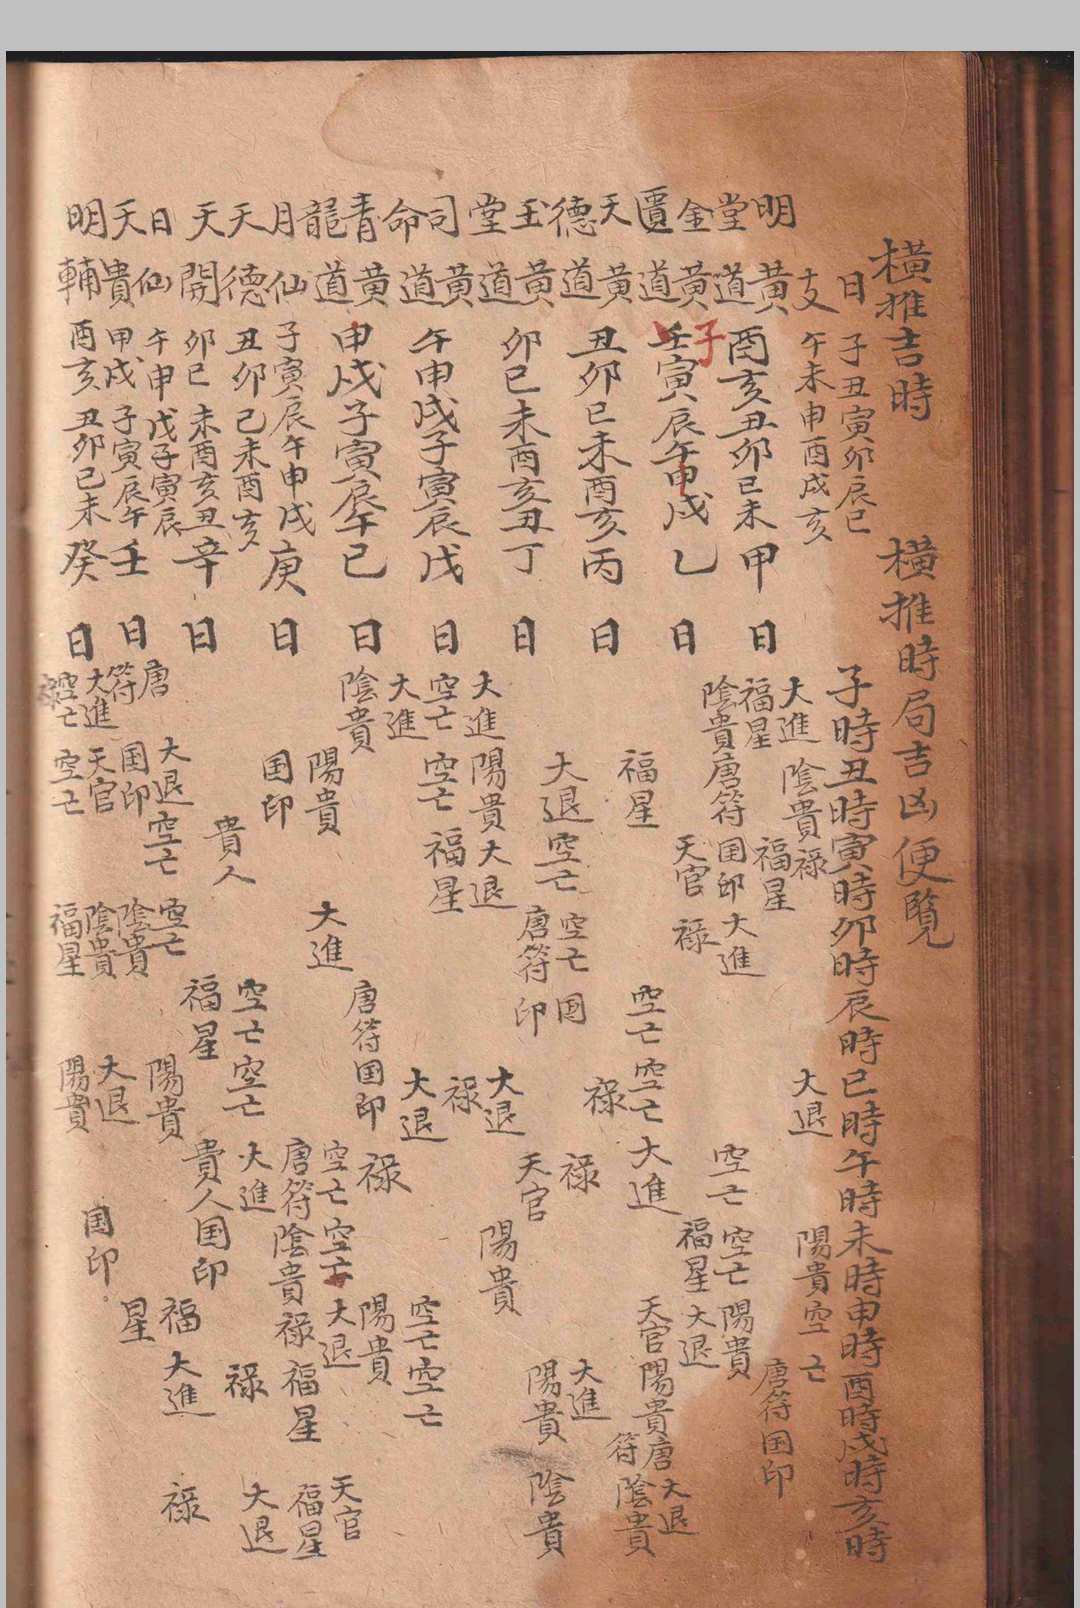 橫推吉時
橫推時局吉凶便覽
日子丑寅卯辰巳
支午未申酉戌亥
子時丑時寅時卯時辰時巳時午時未時申時酉時戌時亥時
明堂黃道酉亥丑卯巳未
金匱黃道子寅辰午申戌
天德黃道丑卯巳未酉亥
玉堂黃道卯巳未酉亥丑
司命黃道午申戌子寅辰
青龍黃道申戌子寅辰午
月仙子寅辰午申戌
天德丑卯巳未酉亥
天開卯巳未酉亥丑
日仙午申戌子寅辰
天貴申戌子寅辰午
明輔酉亥丑卯巳未
甲日
大進 陰貴 祿 大退 陽貴 空亡
福星 福星 唐符 国印
乙日
陰貴 唐符 国印 大進 空亡 空亡 陽貴
天官 祿 福星 大退
丙日
福星 空亡 空亡 大進 天官 陽貴 唐符 大退
祿 陰貴
丁日
大退 空亡 空亡 国印 祿 大進
唐符 天官 陽貴 陰貴
戊日
大進 陽貴 大退 大退 陽貴
空亡 空亡 福星 祿 空亡 空亡
己日
大進 大退 陽貴
陰貴 唐符 国印 祿
庚日
陽貴 大進 空亡 空亡 大退 天官
国印 唐符 陰貴 祿 福星 福星
辛日
貴人 空亡 空亡 大進 祿 大退
福星 貴人 国印
壬日
唐符 大退 空亡 空亡 陽貴 福星 大進 祿
国印 陰貴
癸日
大進 天官 陰貴 大退 国印
空亡 空亡 福星 陽貴